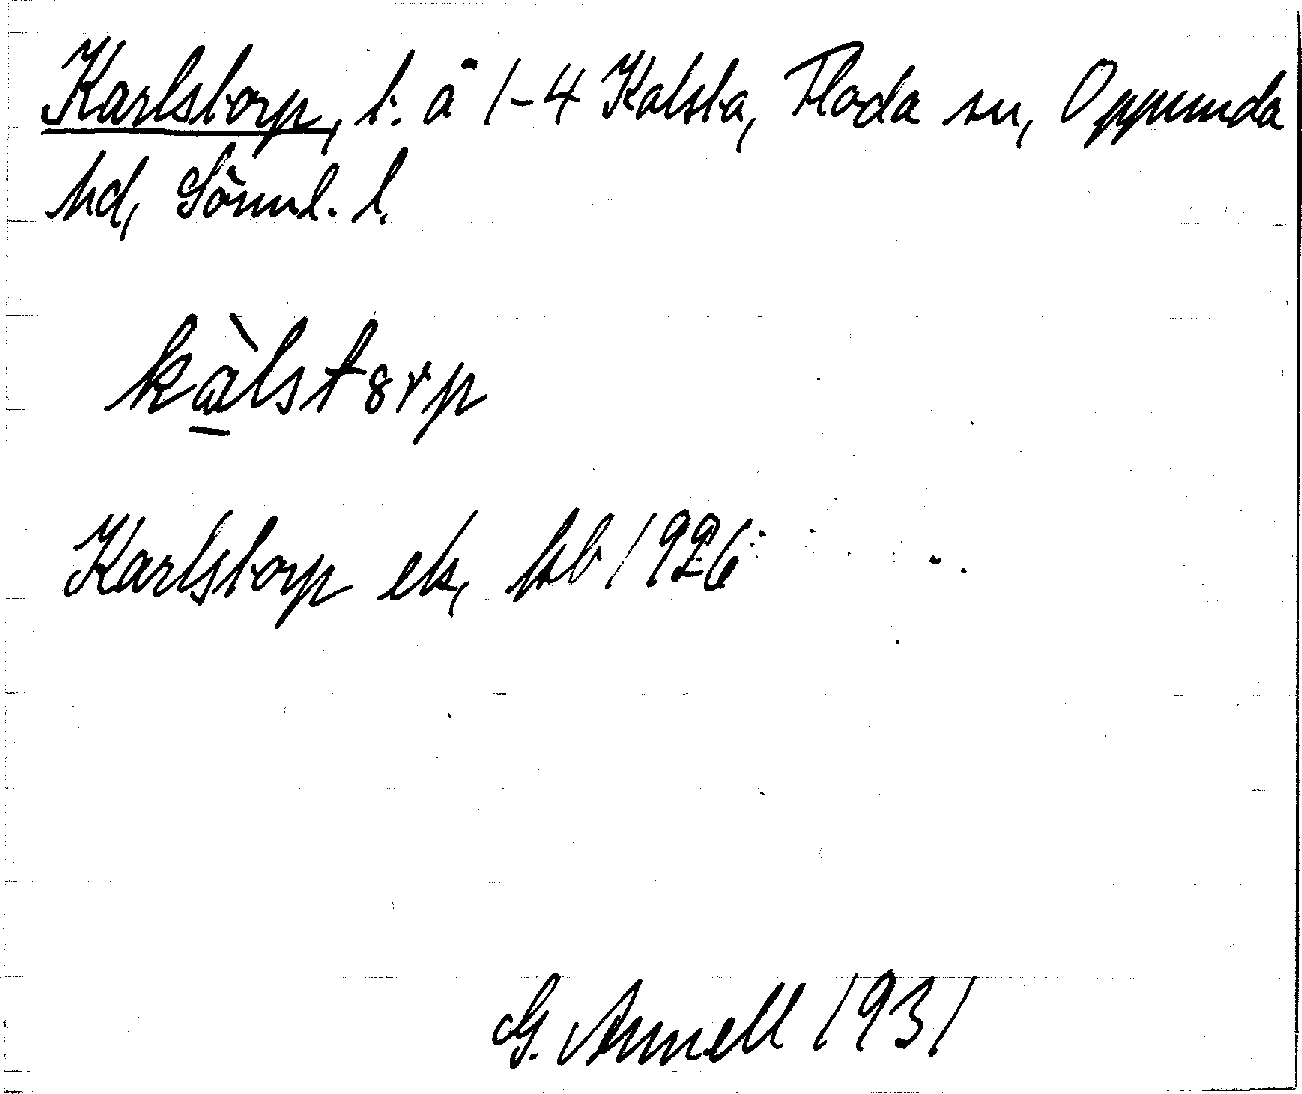 Karlstorp, t. å 1-4 Kalsta, Floda sn, Oppunda
hd, Sörml. l.
kàlstårp
Karlstorp ek, kb 1926
G. Annell 1931